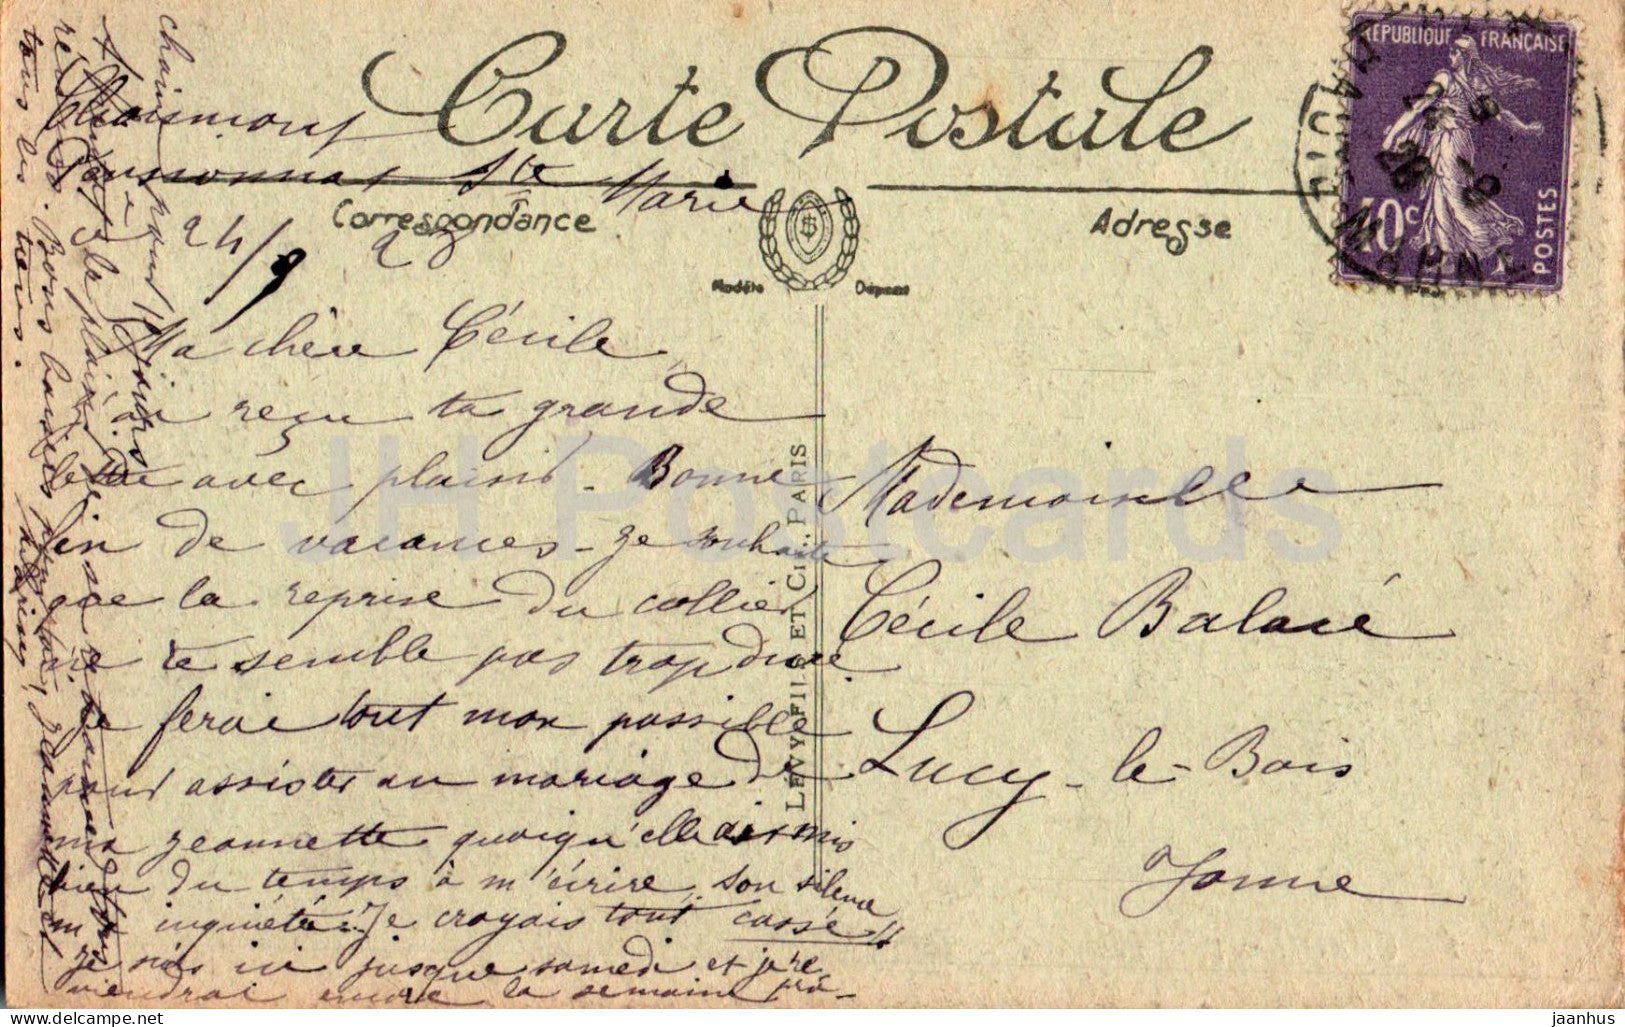 Carte Postale
Correspondance
Adresse
Modèle Déposé
LEVY FILS ET Cie PARIS
RÉPUBLIQUE FRANÇAISE
40c
POSTES
Chaumont
Ste Marie
24/9 28
Ma chère Cécile
J'ai reçu ta grande
lettre avec plaisir - Bonne
fin de vacances - Je souhaite
que la reprise du collier
ne te semble pas trop dure
Je ferai tout mon possible
pour assister au mariage de
ma Jeannette quoiqu'elle ait mis
bien du temps à m'écrire, son silence
m'inquiétait. Je croyais tout cassé!!
Je suis ici jusque samedi et je re
viendrai encore la semaine pro-
chaine pour 8 jours
le plaisir de
tous les tiens.
Bons baisers pour toi, Jeannette et
Mademoiselle
Cécile Balacé
Lucy-le-Bois
Yonne
JH Postcards
www.delcampe.net
jaanhus